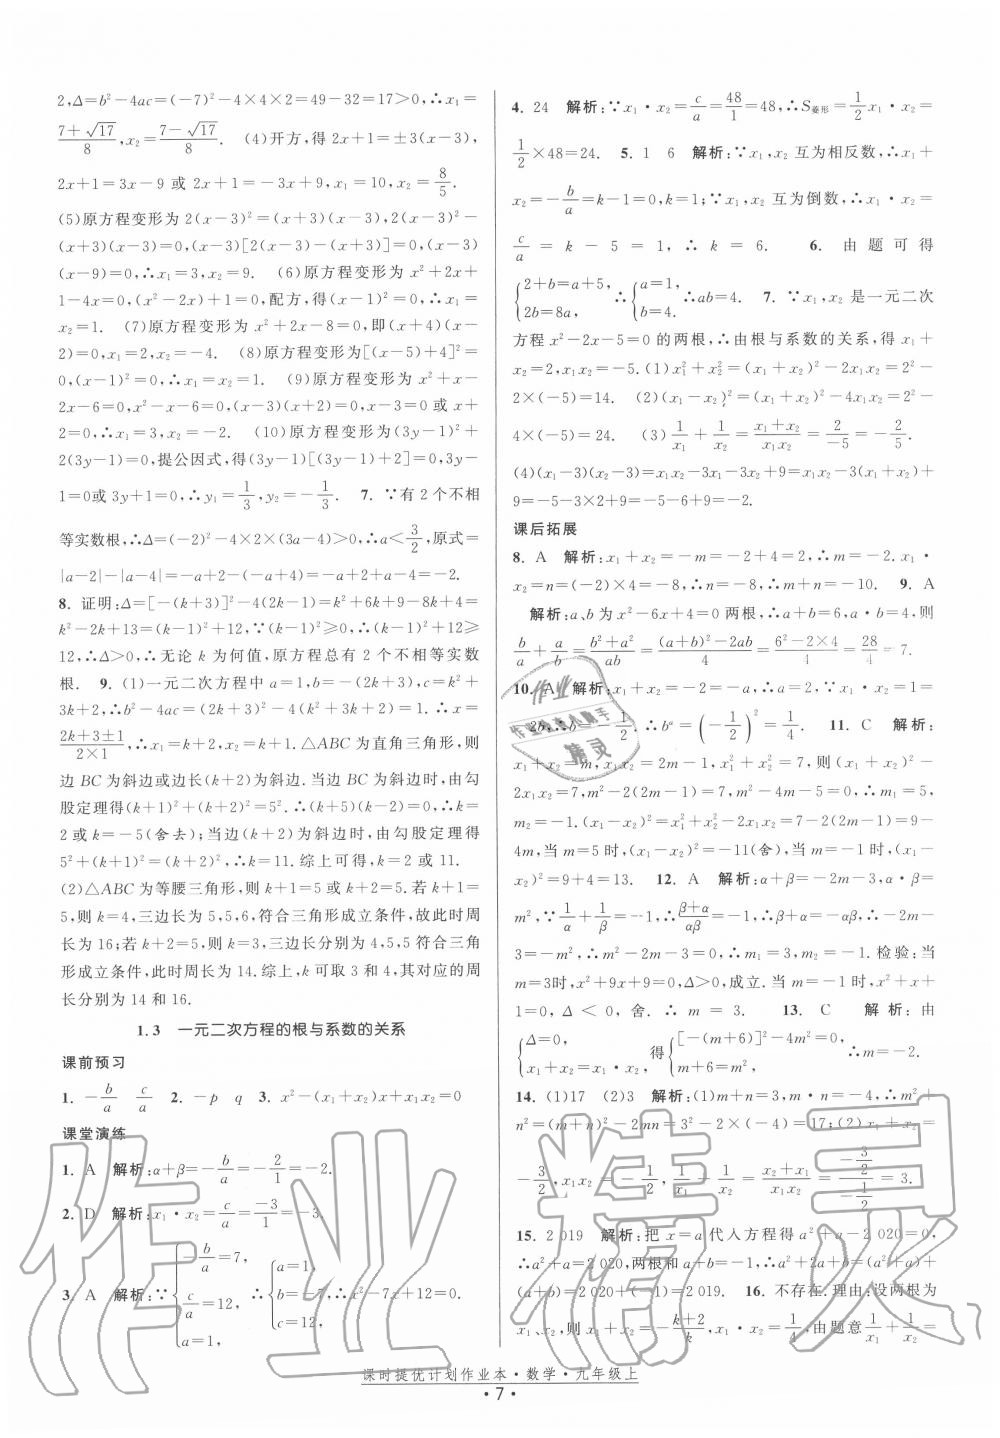 2,Δ=b²-4ac=(-7)²-4×4×2=49-32=17>0,∴x₁=
(7+√17)/8,x₂=(7-√17)/8. (4)开方,得2x+1=±3(x-3),
2x+1=3x-9或2x+1=-3x+9,x₁=10,x₂=8/5.
(5)原方程变形为2(x-3)²=(x+3)(x-3),2(x-3)²-
(x+3)(x-3)=0,(x-3)[2(x-3)-(x+3)]=0,(x-3)
(x-9)=0,∴x₁=3,x₂=9. (6)原方程变形为x²+2x+
1-4x=0,(x²-2x)+1=0,配方,得(x-1)²=0,∴x₁=
x₂=1. (7)原方程变形为x²+2x-8=0,即(x+4)(x-
2)=0,x₁=2,x₂=-4. (8)原方程变形为[(x-5)+4]²=
0,(x-1)²=0,∴x₁=x₂=1. (9)原方程变形为x²+x-
2x-6=0,x²-x-6=0,(x-3)(x+2)=0,x-3=0或x+
2=0,∴x₁=3,x₂=-2. (10)原方程变形为(3y-1)²+
2(3y-1)=0,提公因式,得(3y-1)[(3y-1)+2]=0,3y-
1=0或3y+1=0,∴y₁=1/3,y₂=-1/3. 7. ∵有2个不相
等实数根,∴Δ=(-2)²-4×2×(3a-4)>0,∴a<3/2,原式=
|a-2|-|a-4|=-a+2-(-a+4)=-a+2+a-4=-2.
8. 证明:Δ=[-(k+3)]²-4(2k-1)=k²+6k+9-8k+4=
k²-2k+13=(k-1)²+12,∵(k-1)²≥0,∴(k-1)²+12≥
12,∴Δ>0,∴无论k为何值,原方程总有2个不相等实数
根. 9. (1)一元二次方程中a=1,b=-(2k+3),c=k²+
3k+2,∴b²-4ac=(2k+3)²-4(k²+3k+2)=1.∴x=
(2k+3±1)/(2×1),∴x₁=k+2,x₂=k+1.∵△ABC为直角三角形,则
边BC为斜边或边长(k+2)为斜边.当边BC为斜边时,由勾
股定理得(k+1)²+(k+2)²=5².∴(k-2)(k+5)=0,∴k=
2或k=-5(舍去);当边(k+2)为斜边时,由勾股定理得
5²+(k+1)²=(k+2)²,∴k=11.综上可得,k=2或11.
(2)△ABC为等腰三角形,则k+1=5或k+2=5.若k+1=
5,则k=4,三边长为5,5,6,符合三角形成立条件,故此时周
长为16;若k+2=5,则k=3,三边长分别为4,5,5符合三角
形成立条件,此时周长为14.综上,k可取3和4,其对应的周
长分别为14和16.
1.3 一元二次方程的根与系数的关系
课前预习
1. -b/a c/a 2. -p q 3. x²-(x₁+x₂)x+x₁x₂=0
课堂演练
1. A 解析:α+β=-b/a=-2/1=-2.
2. D 解析:x₁·x₂=c/a=-3/1=-3
3. A 解析:∵{-b/a=7, c/a=12, a=1, ∴{a=1, b=-7, c=12, ∴x²-7x+12=0.
4. 24 解析:∵x₁·x₂=c/a=48/1=48,∴S菱形=1/2x₁·x₂=
1/2×48=24. 5. 1 6 解析:∵x₁,x₂互为相反数,∴x₁+
x₂=-b/a=k-1=0,k=1;∵x₁,x₂互为倒数,∴x₁·x₂=
c/a=k-5=1,∴k=6. 6. 由题可得
{2+b=a+5, 2b=8a, ∴{a=1, b=4. ∴ab=4. 7. ∵x₁,x₂是一元二次
方程x²-2x-5=0的两根,∴由根与系数的关系,得x₁+
x₂=2,x₁x₂=-5.(1)x₁²+x₂²=(x₁+x₂)²-2x₁x₂=2²-
2×(-5)=14. (2)(x₁-x₂)²=(x₁+x₂)²-4x₁x₂=2²-
4×(-5)=24. (3)1/x₁+1/x₂=(x₁+x₂)/(x₁x₂)=2/-5=-2/5.
(4)(x₁-3)(x₂-3)=x₁x₂-3x₁-3x₂+9=x₁x₂-3(x₁+x₂)+
9=-5-3×2+9=-5-6+9=-2.
课后拓展
8. A 解析:x₁+x₂=-m=-2+4=2,∴m=-2.x₁·
x₂=n=(-2)×4=-8,∴n=-8,∴m+n=-10. 9. A
解析:a、b为x²-6x+4=0两根,∴a+b=6,a·b=4,则
b/a+a/b=(b²+a²)/ab=((a+b)²-2ab)/4=(6²-2×4)/4=28/4=7.
10. A 解析:x₁+x₂=-2=-a,∴a=2,∵x₁x₂=1=
-2b,∴b=-1/2.∴bᵃ=(-1/2)²=1/4. 11. C 解析:
x₁+x₂=m,x₁x₂=2m-1,x₁²+x₂²=7,∴(x₁+x₂)²-
2x₁x₂=7,m²-2(2m-1)=7,m²-4m-5=0,∴m₁=5,
m₂=-1.(x₁-x₂)²=x₁²+x₂²-2x₁x₂=7-2(2m-1)=9-
4m,当m=5时,(x₁-x₂)²=-11(舍),当m=-1时,(x₁-
x₂)²=9+4=13. 12. A 解析:α+β=-2m-3,α·β=
m²,∵1/α+1/β=-1,∴(β+α)/αβ=-1,∴β+α=-αβ,∴-2m-
3=-m²,∴m²-2m-3=0,∴m₁=3,m₂=-1.检验:当
m=3时,x²+9x+9=0,Δ>0,成立.当m=-1时,x²+x+
1=0,Δ<0,舍.∴m=3. 13. C 解析:由
{Δ=0, x₁·x₂=x₁+x₂, 得{[-(m+6)]²-4m²=0, m+6=m², ∴m=-2.
14. (1)17 (2)3 解析:(1)m+n=3,m·n=-4,∴m²+
n²=(m+n)²-2mn=3²-2×(-4)=17;(2)x₁+x₂=
-3/2,x₁x₂=-1/2,∴1/x₁+1/x₂=(x₂+x₁)/(x₁x₂)=(-3/2)/(-1/2)=3.
15. 2 019 解析:把x=a代入方程得a²+a-2 020=0,
∴a²+a=2 020,两根和a+b=-1,∴a²+2a+b=(a²+a)+
(a+b)=2 020+(-1)=2 019. 16. 不存在.理由:设两根为
x₁、x₂,则x₁+x₂=-(k+2)/k,x₁·x₂=1/4,由题意1/x₁+1/x₂=
课时提优计划作业本·数学·九年级上
·7·
作业精灵
作业
精灵